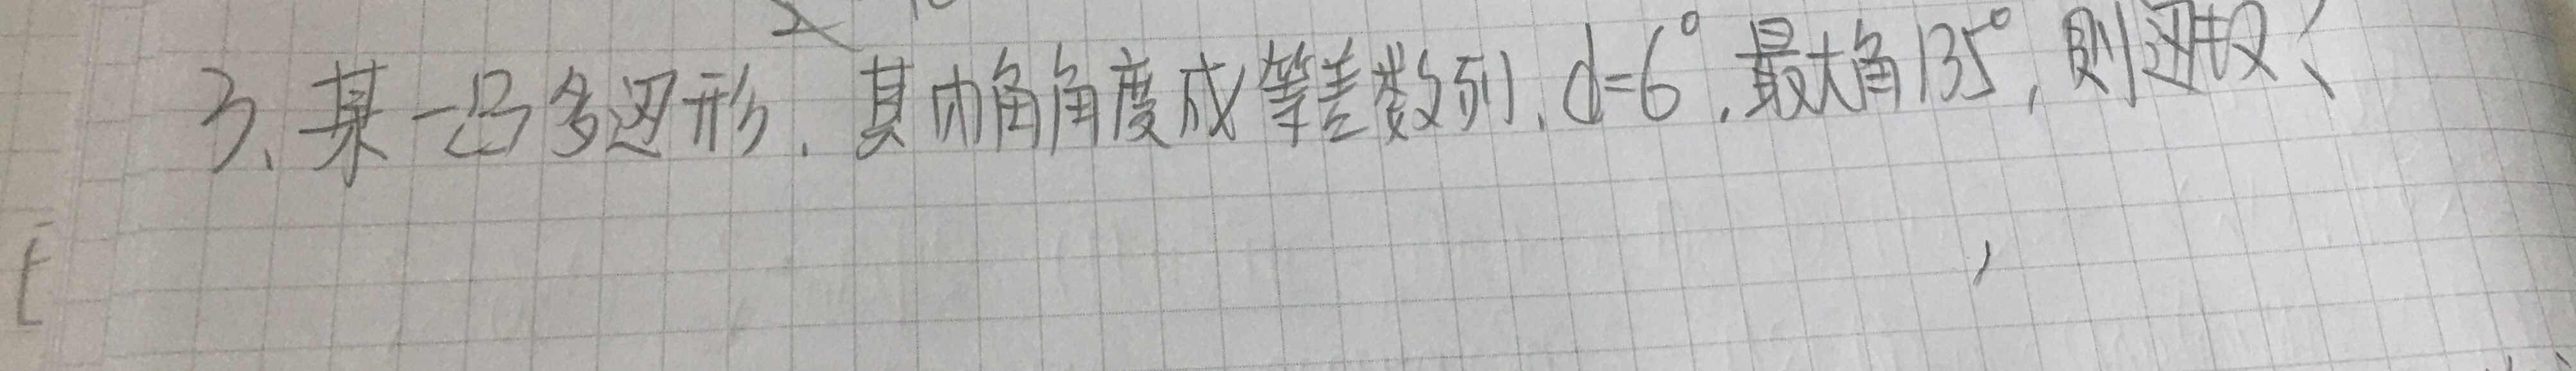 3、某一凸多边形，其内角角度成等差数列，d=6°，最大角135°，则边数：